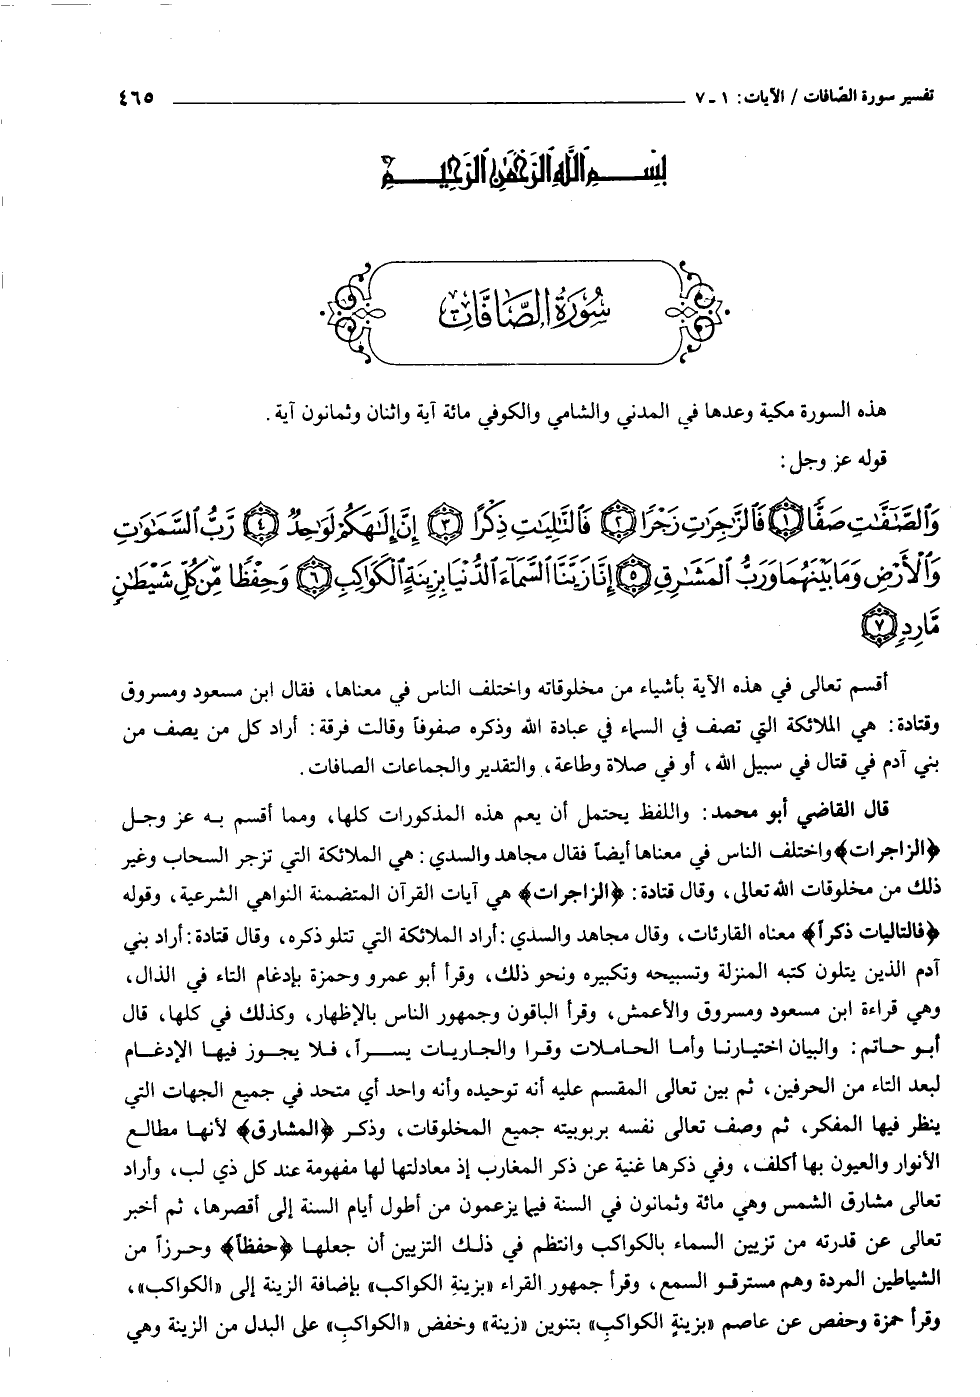 تفسير سورة الصّافات / الآيات: ١ ـ ٧ ٤٦٥
بِسْمِ اللَّهِ الرَّحْمَٰنِ الرَّحِيمِ
سُورَةُ الصَّافَّاتِ
هذه السورة مكية وعدها في المدني والشامي والكوفي مائة آية واثنان وثمانون آية.
قوله عز وجل:
وَٱلصَّٰٓفَّٰتِ صَفًّا ١ فَٱلزَّٰجِرَٰتِ زَجْرًا ٢ فَٱلتَّٰلِيَٰتِ ذِكْرًا ٣ إِنَّ إِلَٰهَكُمْ لَوَٰحِدٌ ٤ رَّبُّ ٱلسَّمَٰوَٰتِ
وَٱلْأَرْضِ وَمَا بَيْنَهُمَا وَرَبُّ ٱلْمَشَٰرِقِ ٥ إِنَّا زَيَّنَّا ٱلسَّمَآءَ ٱلدُّنْيَا بِزِينَةٍ ٱلْكَوَاكِبِ ٦ وَحِفْظًا مِّن كُلِّ شَيْطَٰنٍ
مَّارِدٍ ٧
أقسم تعالى في هذه الآية بأشياء من مخلوقاته واختلف الناس في معناها، فقال ابن مسعود ومسروق
وقتادة: هي الملائكة التي تصف في السماء في عبادة الله وذكره صفوفاً وقالت فرقة: أراد كل من يصف من
بني آدم في قتال في سبيل الله، أو في صلاة وطاعة، والتقدير والجماعات الصافات.
قال القاضي أبو محمد: واللفظ يحتمل أن يعم هذه المذكورات كلها، ومما أقسم به عز وجل
﴿الزاجرات﴾ واختلف الناس في معناها أيضاً فقال مجاهد والسدي: هي الملائكة التي تزجر السحاب وغير
ذلك من مخلوقات الله تعالى، وقال قتادة: ﴿الزاجرات﴾ هي آيات القرآن المتضمنة النواهي الشرعية، وقوله
﴿فالتاليات ذكراً﴾ معناه القارئات، وقال مجاهد والسدي: أراد الملائكة التي تتلو ذكره، وقال قتادة: أراد بني
آدم الذين يتلون كتبه المنزلة وتسبيحه وتكبيره ونحو ذلك، وقرأ أبو عمرو وحمزة بإدغام التاء في الذال،
وهي قراءة ابن مسعود ومسروق والأعمش، وقرأ الباقون وجمهور الناس بالإظهار، وكذلك في كلها، قال
أبو حاتم: والبيان اختيارنا وأما الحاملات وقرا والجاريات يسراً، فلا يجوز فيها الإدغام
لبعد التاء من الحرفين، ثم بين تعالى المقسم عليه أنه توحيده وأنه واحد أي متحد في جميع الجهات التي
ينظر فيها المفكر، ثم وصف تعالى نفسه بربوبيته جميع المخلوقات، وذكر ﴿المشارق﴾ لأنها مطالع
الأنوار والعيون بها أكلف، وفي ذكرها غنية عن ذكر المغارب إذ معادلتها لها مفهومة عند كل ذي لب، وأراد
تعالى مشارق الشمس وهي مائة وثمانون في السنة فيما يزعمون من أطول أيام السنة إلى أقصرها، ثم أخبر
تعالى عن قدرته من تزيين السماء بالكواكب وانتظم في ذلك التزيين أن جعلها ﴿حفظاً﴾ وحرزاً من
الشياطين المردة وهم مسترقو السمع، وقرأ جمهور القراء «بزينةِ الكواكب» بإضافة الزينة إلى «الكواكب»،
وقرأ حمزة وحفص عن عاصم «بزينةٍ الكواكبِ» بتنوين «زينة» وخفض «الكواكبِ» على البدل من الزينة وهي